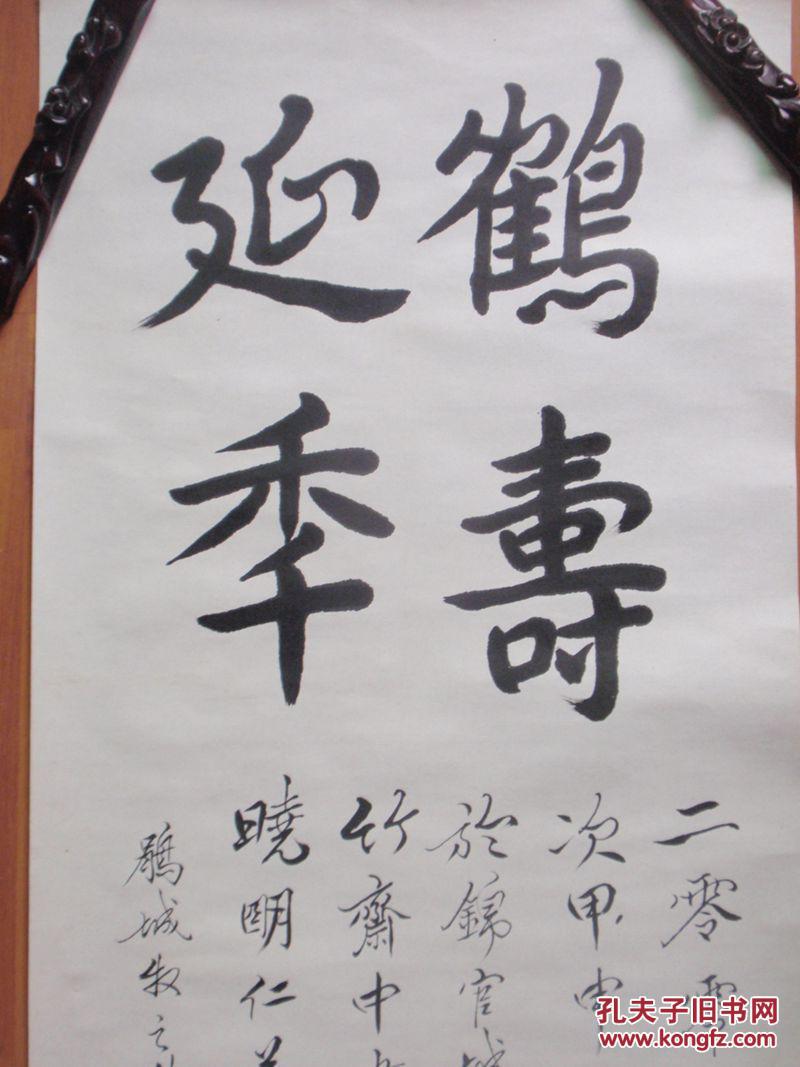 鶴壽
延秊
二零零
次甲申
於錦官城
竹齋中
曉明仁
鵑城牧之
孔夫子旧书网
www.kongfz.com